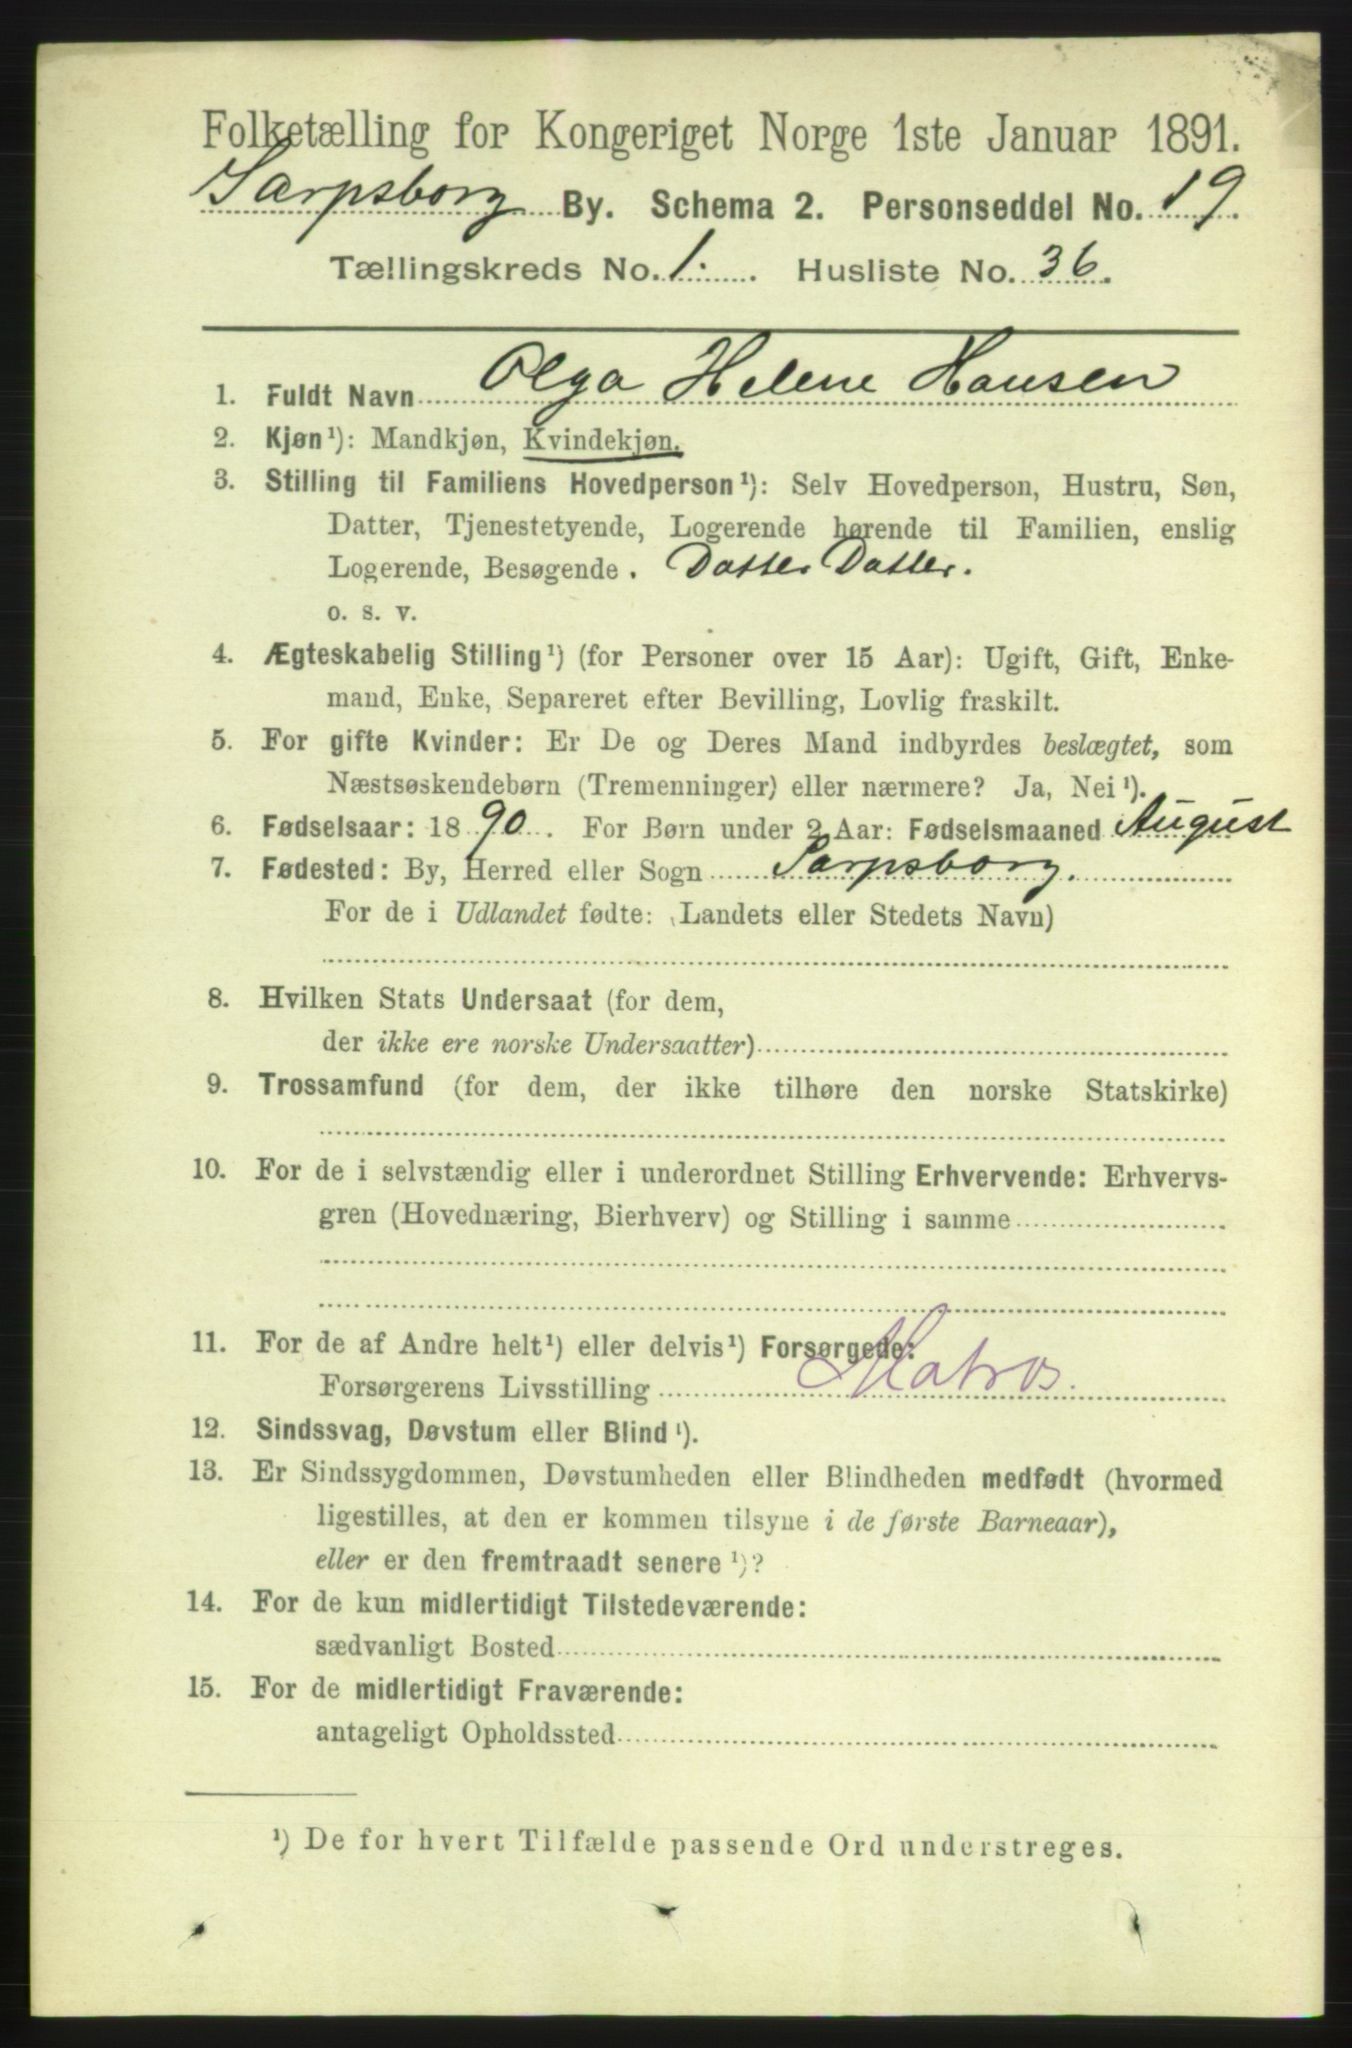 Folketælling for Kongeriget Norge 1ste Januar 1891.
Sarpsborg By. Schema 2. Personseddel No. 19.
Tællingskreds No. 1. Husliste No. 36.
1. Fuldt Navn Olga Helene Hansen
2. Kjøn¹): Mandkjøn, Kvindekjøn.
3. Stilling til Familiens Hovedperson¹): Selv Hovedperson, Hustru, Søn,
Datter, Tjenestetyende, Logerende hørende til Familien, enslig
Logerende, Besøgende. Datter Datter.
o. s. v.
4. Ægteskabelig Stilling¹) (for Personer over 15 Aar): Ugift, Gift, Enke-
mand, Enke, Separeret efter Bevilling, Lovlig fraskilt.
5. For gifte Kvinder: Er De og Deres Mand indbyrdes beslægtet, som
Næstsøskendebørn (Tremenninger) eller nærmere? Ja, Nei¹).
6. Fødselsaar: 1890. For Børn under 2 Aar: Fødselsmaaned August
7. Fødested: By, Herred eller Sogn Sarpsborg.
For de i Udlandet fødte: (Landets eller Stedets Navn)
8. Hvilken Stats Undersaat (for dem,
der ikke ere norske Undersaatter)
9. Trossamfund (for dem, der ikke tilhøre den norske Statskirke)
10. For de i selvstændig eller i underordnet Stilling Erhvervende: Erhvervs-
gren (Hovednæring, Bierhverv) og Stilling i samme
11. For de af Andre helt¹) eller delvis¹) Forsørgede:
Forsørgerens Livsstilling Matros.
12. Sindssvag, Døvstum eller Blind¹).
13. Er Sindssygdommen, Døvstumheden eller Blindheden medfødt (hvormed
ligestilles, at den er kommen tilsyne i de første Barneaar),
eller er den fremtraadt senere¹)?
14. For de kun midlertidigt Tilstedeværende:
sædvanligt Bosted
15. For de midlertidigt Fraværende:
antageligt Opholdssted
¹) De for hvert Tilfælde passende Ord understreges.